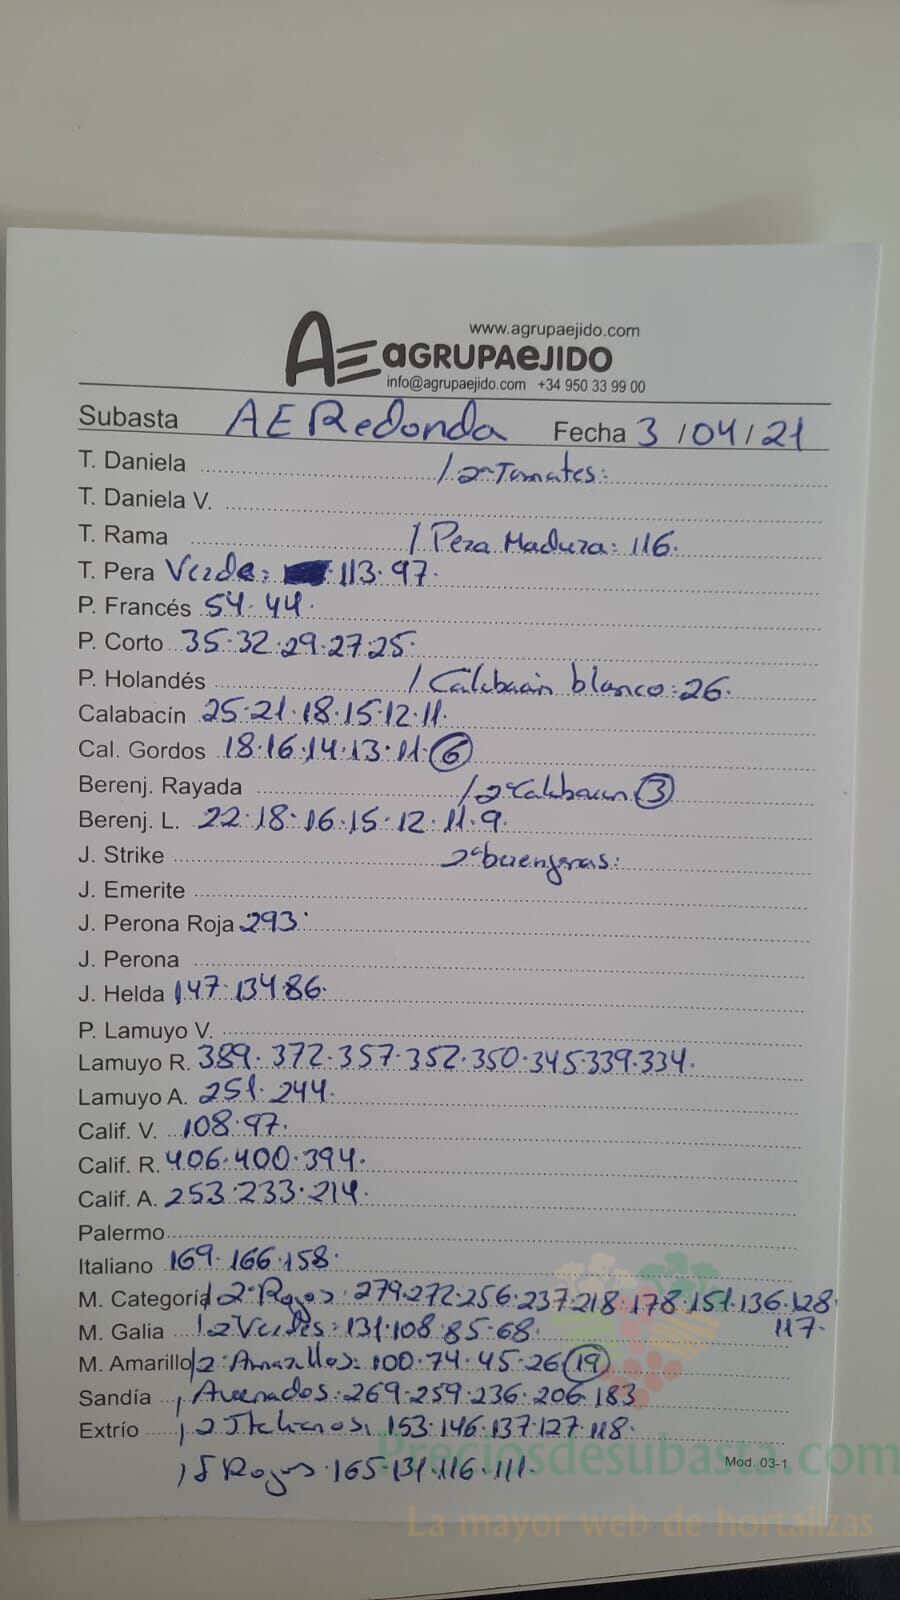 www.agrupaejido.com
AE aGRUPAeJIDO
info@agrupaejido.com +34 950 33 99 00
Subasta AE Redonda Fecha 3/04/21
T. Daniela / 2ª Tomates:
T. Daniela V.
T. Rama / Pera Madura: 116.
T. Pera Verde: 113. 97.
P. Francés 54. 44.
P. Corto 35. 32. 29. 27. 25.
P. Holandés / Calabacín blanco: 26.
Calabacín 25. 21. 18. 15. 12. 11.
Cal. Gordos 18. 16. 14. 13. 11. 6
Berenj. Rayada / 2ª Calabacín 3
Berenj. L. 22. 18. 16. 15. 12. 11. 9.
J. Strike 2ª berenjenas:
J. Emerite
J. Perona Roja 293.
J. Perona
J. Helda 147. 134. 86.
P. Lamuyo V.
Lamuyo R. 389. 372. 357. 352. 350. 345. 339. 334.
Lamuyo A. 251. 244.
Calif. V. 108. 97.
Calif. R. 406. 400. 394.
Calif. A. 253. 233. 214.
Palermo
Italiano 169. 166. 158.
M. Categoría / 2ª Rojos. 279. 272. 256. 237. 218. 178. 151. 136. 128
117.
M. Galia / 2 Verdes: 131. 108. 85. 68.
M. Amarillo / 2ª Amarillos: 100. 74. 45. 26. 19
Sandía / Asurcados. 269. 259. 236. 206. 183
Extrío / 2 Italianos. 153. 146. 137. 127. 118.
/ S Rojos. 165. 131. 116. 111.
Mod. 03-1
Preciosdesubasta.com
La mayor web de hortalizas